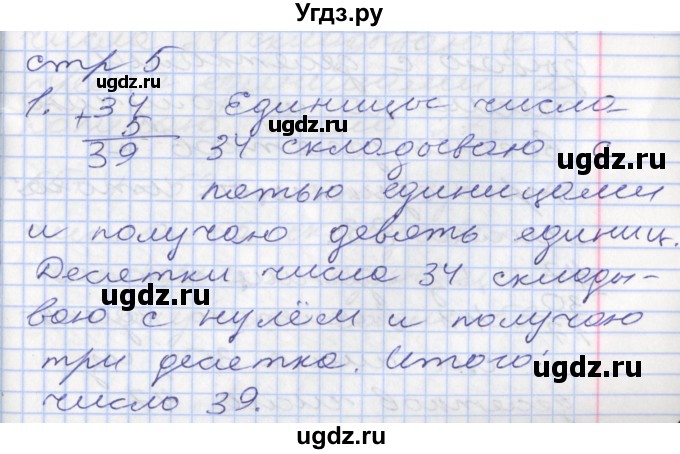 Угдз.ру
стр 5
1. 34 Единицы числа
+ 5
39 34 складываю с
пятью единицами
и получаю девять единиц.
Десятки числа 34 склады-
ваю с нулём и получаю
три десятка. Итого:
число 39.
ugdz.ru
ugdz.ru
ugdz.ru
ugdz.ru
ugdz.ru
ugdz.ru
ugdz.ru
ugdz.ru
ugdz.ru